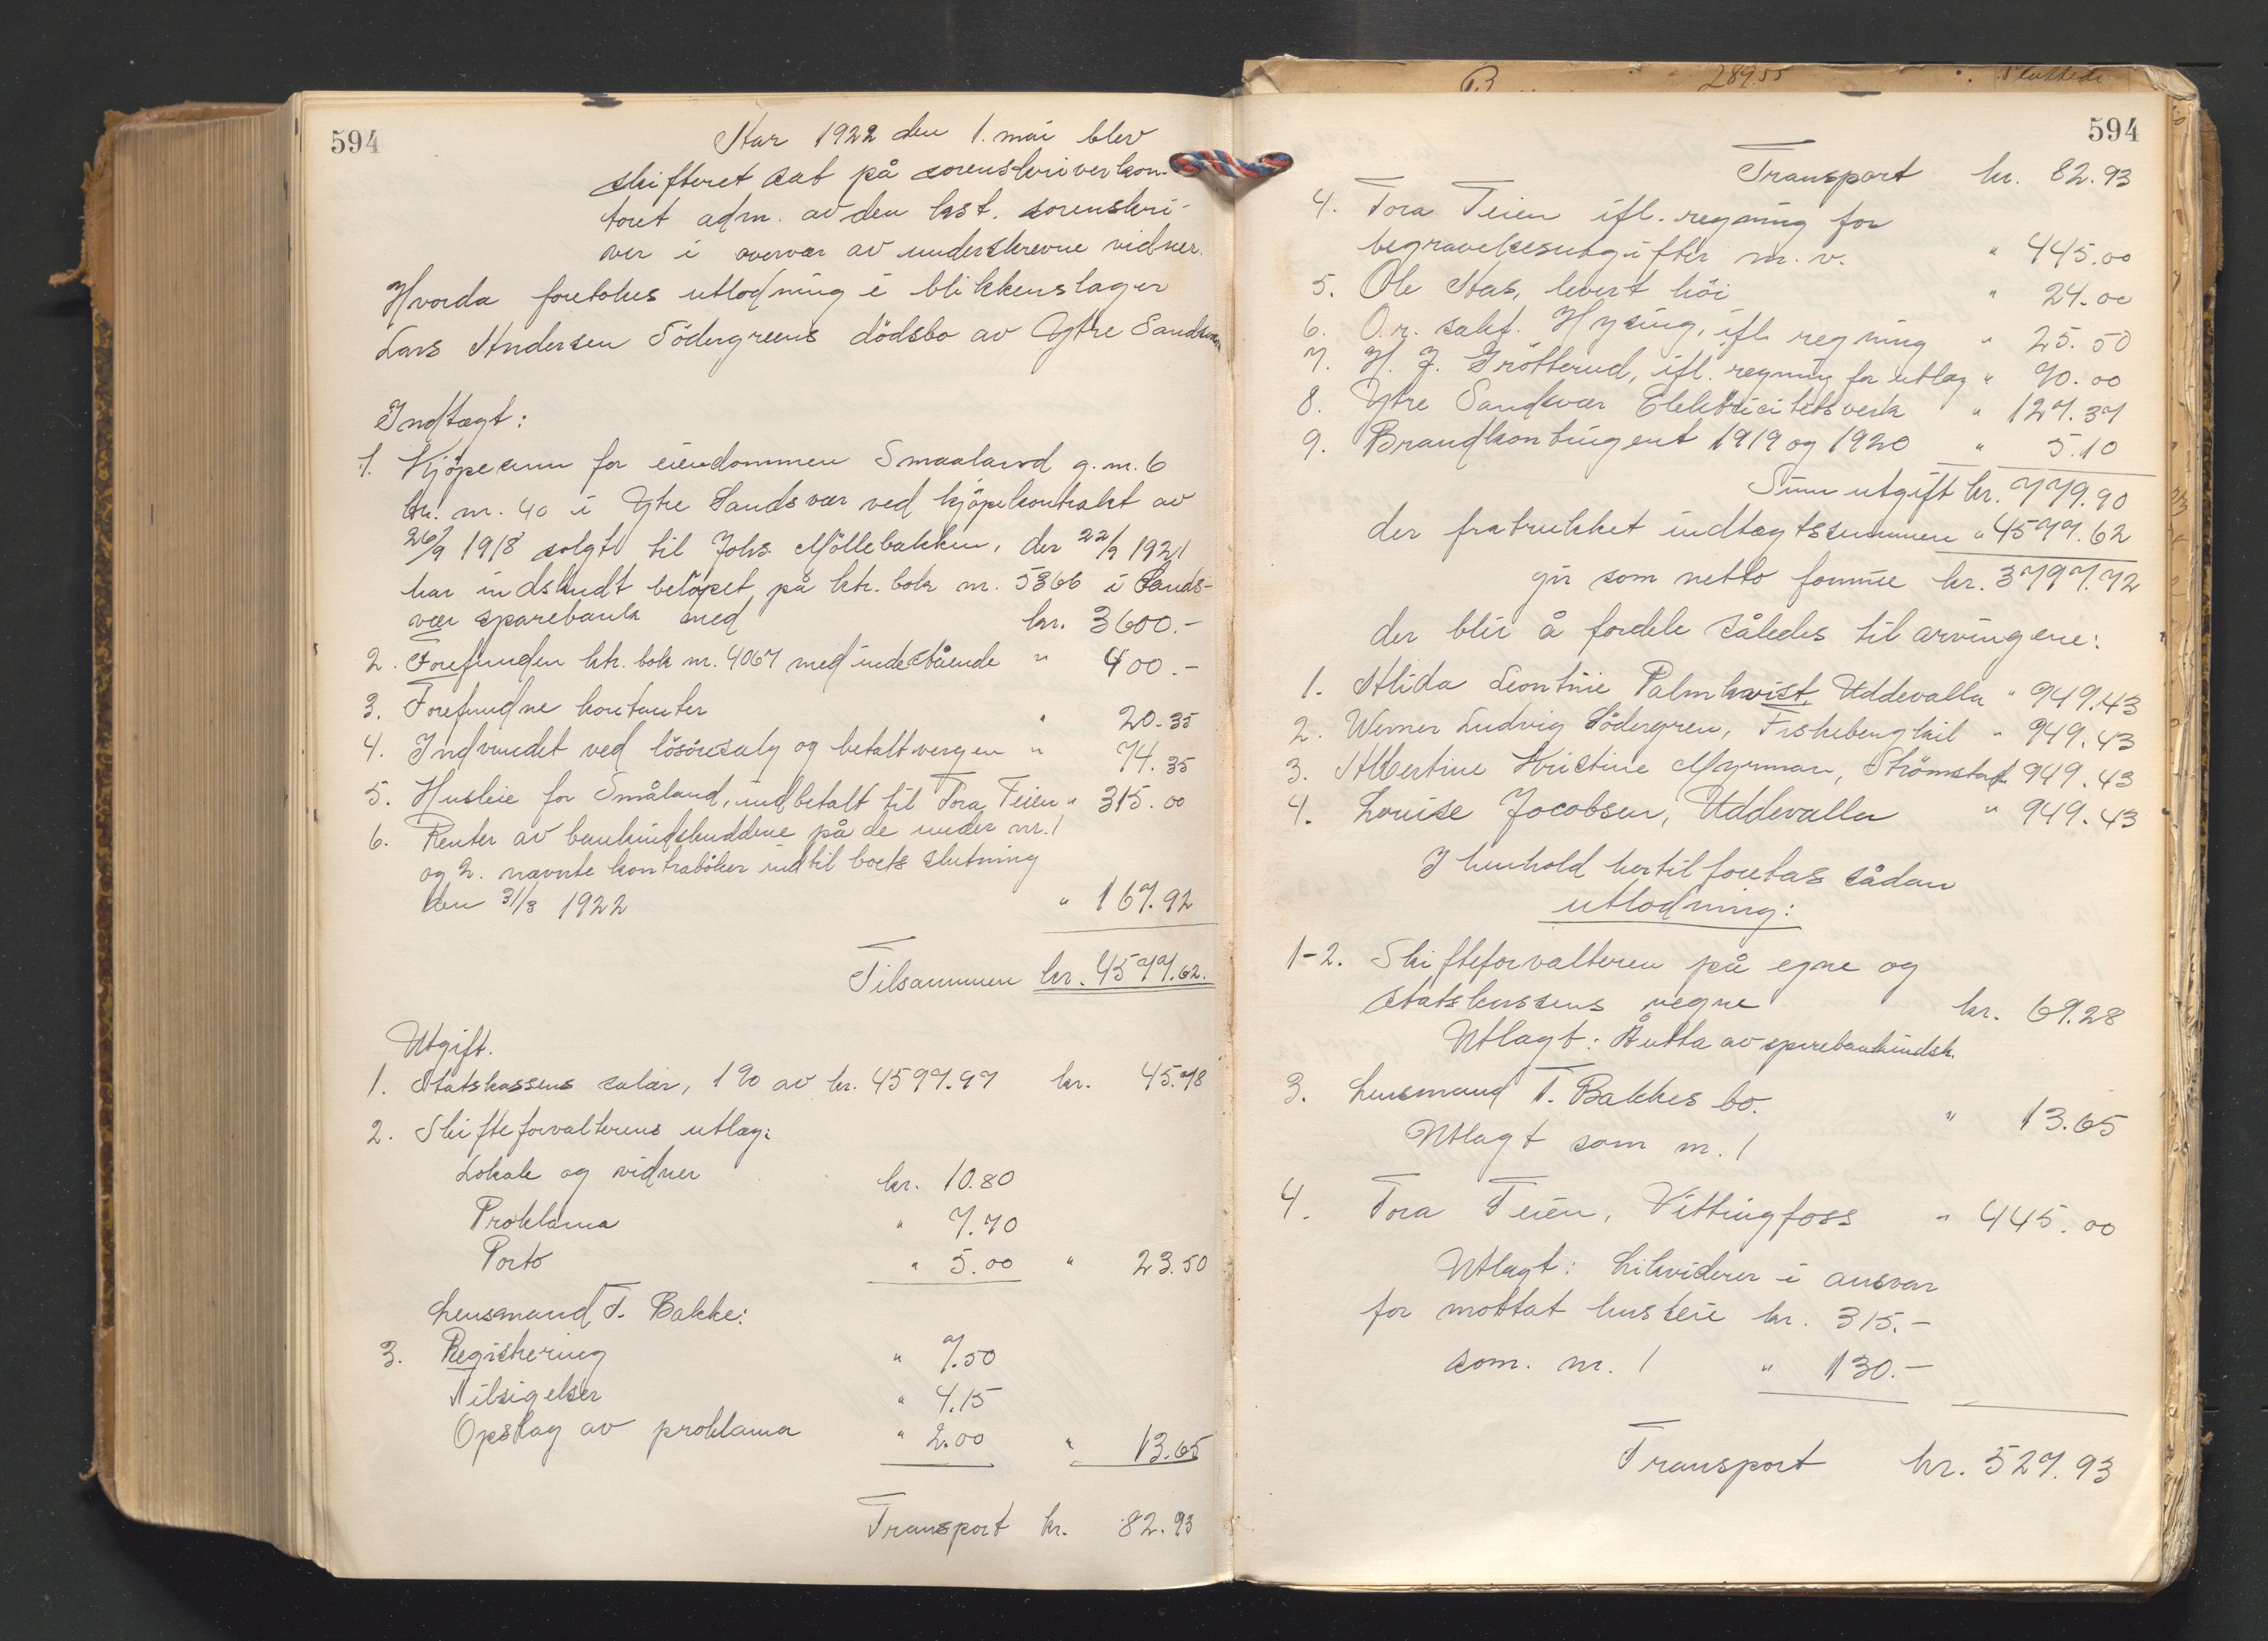 594
Aar 1922 den 1. mai blev
skifteret sat på sorenskriverkon-
toret adm. av den kst. sorenskri-
ver i overvær av underskrevne vidner.
Hvorda foretokes utlodning i blikkenslager
Lars Andersen Södergreens dödsbo av Ytre Sandsvær
Indtægt:
1. Kjöpesum for eiendommen Smaaland g. nr. 6
br. nr. 40 i Ytre Sandsvær ved kjöpekontrakt av
26/9 1918 solgt til Johs. Möllebakken, der 22/9 1921
har indskudt belöpet på ktr. bok nr. 5366 i Sands-
vær sparebank med kr. 3600.-
2. Forefunden ktr. bok nr. 4067 med indestående " 400.-
3. Forefundne kontanter " 20.35
4. Indvundet ved lösöresalg og betalt vergen " 74.35
5. Husleie for Småland, indbetalt til Tora Teien " 315.00
6. Renter av bankindskuddene på de under nr. 1
og 2. nævnte kontrabøker indtil boets slutning
den 31/3 1922 " 167.92
Tilsammen kr. 4577.62.
Utgift.
1. Statskassens salær, 1% av kr. 4597.97 kr. 45.78
2. Skifteforvalterens utlæg:
Lokale og vidner kr. 10.80
Proklama " 7.70
Porto " 5.00 " 23.50
Lensmand T. Bakke:
3. Registrering " 7.50
Tilsigelser " 4.15
Opslag av proklama " 2.00 " 13.65
Transport kr. 82.93
B 289.55 Sluttede
594
Transport kr. 82.93
4. Tora Teien ifl. regning for
begravelsesutgifter m. v. " 445.00
5. Ole Aas, levert höi " 24.00
6. O.r. sakf. Hysing, ifl. regning " 25.50
7. H. J. Grötterud, ifl. regning for utlæg " 70.00
8. Ytre Sandsvær Elektricitetsverk " 127.37
9. Brandkontingent 1919 og 1920 " 5.10
Sum utgift kr. 779.90
der fratrukket indtægtssummen " 4577.62
gir som netto formue kr. 3797.72
der blir å fordele således til arvingene:
1. Alida Leontine Palmkvist, Uddevalla " 949.43
2. Werner Ludvig Södergren, Fiskebengkil " 949.43
3. Albertine Kristine Myrman, Strömstad " 949.43
4. Louise Jocobsen, Uddevalla " 949.43
I henhold hertil foretas sådan
utlodning:
1-2. Skifteforvalteren på egne og
statskassens vegne kr. 69.28
Utlagt: Å utta av sparebankindsk.
3. Lensmand T. Bakkes bo. " 13.65
Utlagt som nr. 1
4. Tora Teien, Vittingfoss " 445.00
Utlagt: Likviderer i ansvar
for mottat husleie kr. 315.-
som nr. 1 " 130.-
Transport kr. 527.93